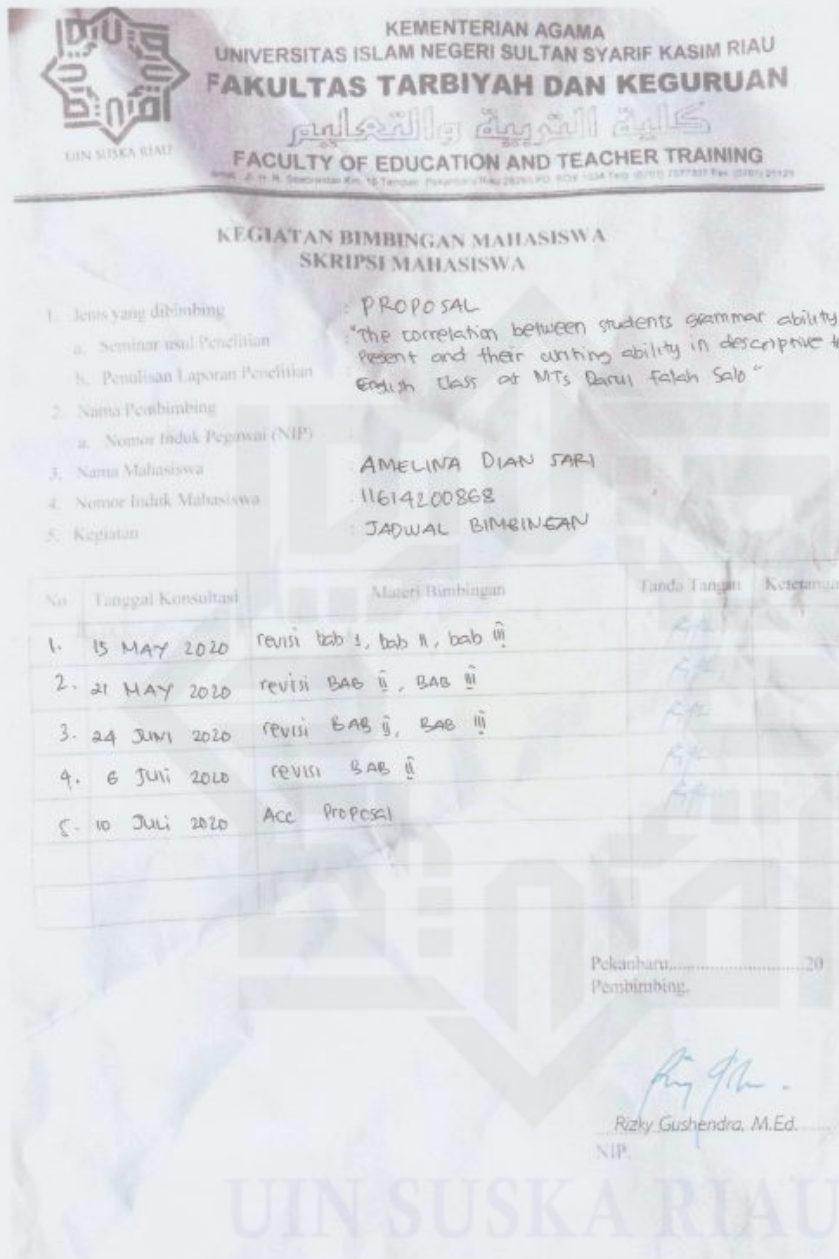 KEMENTERIAN AGAMA
UNIVERSITAS ISLAM NEGERI SULTAN SYARIF KASIM RIAU
FAKULTAS TARBIYAH DAN KEGURUAN
كلية التربية والتعليم
UIN SUSKA RIAU
FACULTY OF EDUCATION AND TEACHER TRAINING
KEGIATAN BIMBINGAN MAHASISWA
SKRIPSI MAHASISWA
1. Jenis yang dibimbing : PROPOSAL
a. Seminar usul Penelitian : "The correlation between students grammar ability
b. Penulisan Laporan Penelitian : Present and their writing ability in descriptive
English Class at MTs Darul Falah Salo"
2. Nama Pembimbing
a. Nomor Induk Pegawai (NIP) :
3. Nama Mahasiswa : AMELINA DIAN SARI
4. Nomor Induk Mahasiswa : 11614200868
5. Kegiatan : JADWAL BIMBINGAN
No Tanggal Konsultasi Materi Bimbingan Tanda Tangan Keterangan
1. 15 MAY 2020 revisi bab I, bab II, bab III
2. 21 MAY 2020 revisi BAB II, BAB III
3. 24 JUNI 2020 revisi BAB II, BAB III
4. 6 JUli 2020 revisi BAB II
5. 10 JULi 2020 Acc Proposal
Pekanbaru,............................20
Pembimbing,
Rizky Gushendra, M.Ed.
NIP.
UIN SUSKA RIAU